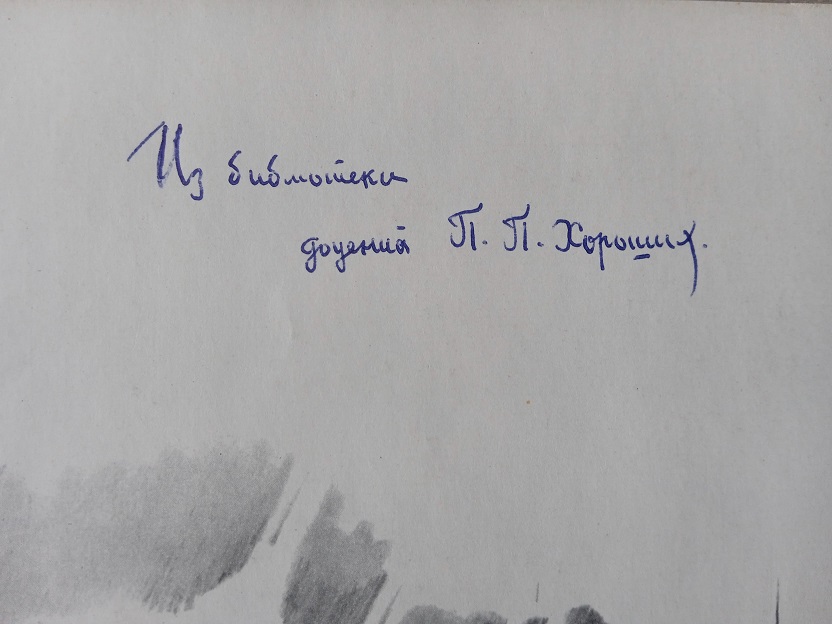 Из библиотеки
доцента П. П. Хороших.